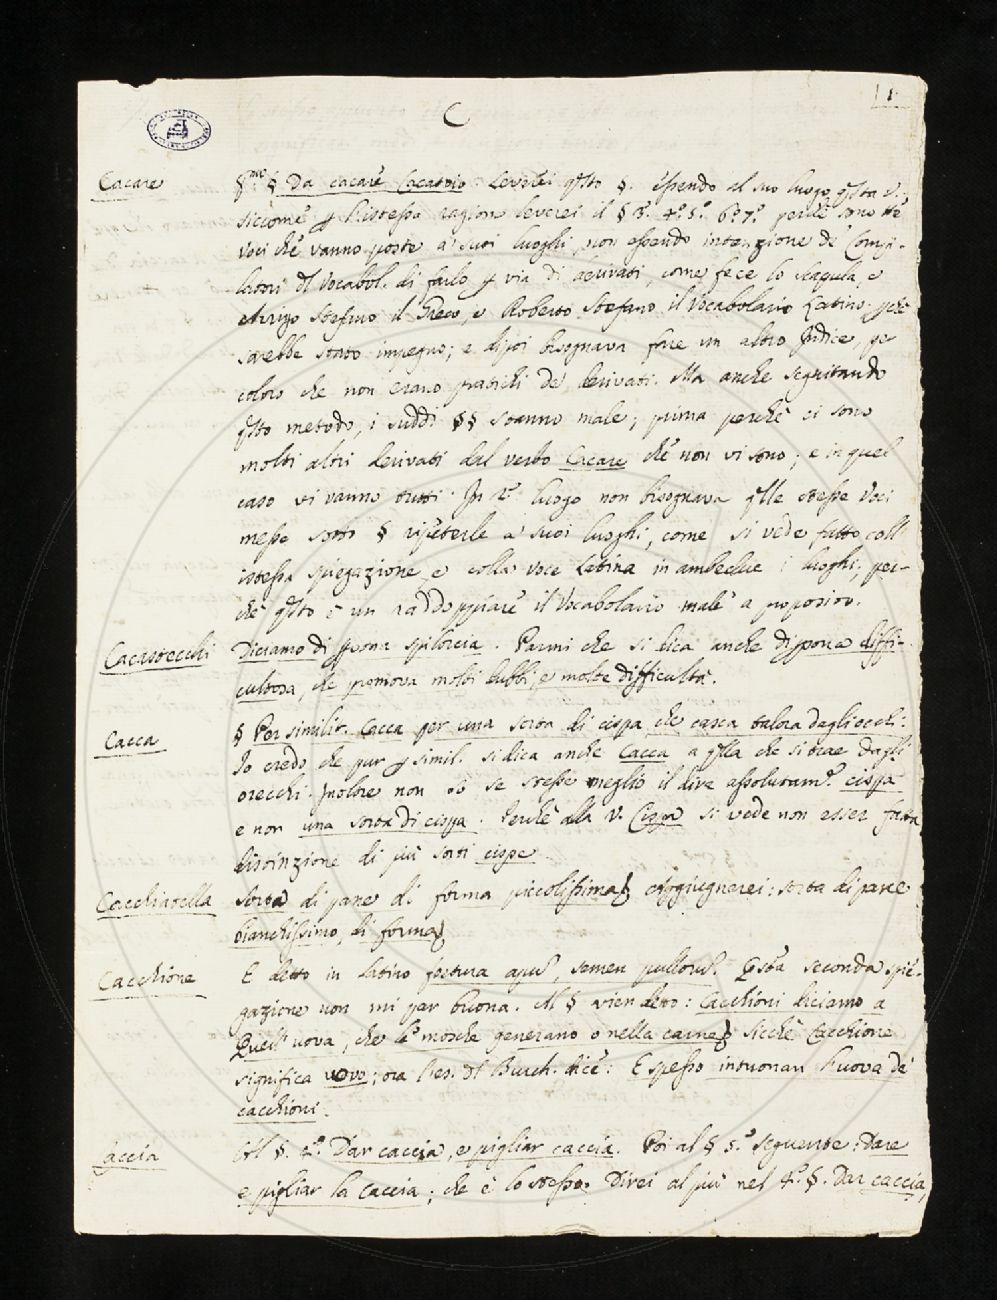 1
C
Cacare
§.mo § Da cacare Cacatoio. Leverei q̃sto §. essendo al suo luogo q̃sta V.
siccome p̱ l'istessa ragione leverei il § 3.° 4.° 5.° 6.° 7.° perchè sono tte
Voci che vanno poste a' suoi luoghi, non essendo intenzione de' Compi-
latori dl Vocabol. di farlo p̱ via di derivati, come fece lo Scapula, e
Arrigo Stefano il Greco, e Roberto Stefano il Vocabolario Latino. perchè
sarebbe stato impegno; e dipoi bisognava fare un altro Indice, per
coloro che non erano pratichi de' derivati. Ma anche seguitando
q̃sto metodo, i suddi §§ stanno male; prima perchè ci sono
molti altri derivati dal verbo Cacare che non vi sono; e in quel
caso vi vanno tutti. In 2.° luogo non bisognava q̃lle stesse Voci
messe sotto § ripeterle a' suoi luoghi, come si vede fatto coll'
istessa spiegazione, e colla voce Latina in ambedue i luoghi, per-
chè q̃sto è un raddoppiare il Vocabolario male a proposito.
Cacastecchi
Diciamo di p̱sona spilorcia. Parmi che si dica anche di p̱sona diffi-
cultosa, che promova molti dubbi, e molte difficultà.
Cacca
§ Per similit. Cacca per una sorta di cispa, che casca talora dagli occhi.
Io credo che pur p̱ simil. si dica anche Cacca a q̃lla che si trae dagli
orecchi. Inoltre non so se stesse meglio il dire assolutam.e cispa
e non una sorta di cispa. Perchè alla V. Cispa si vede non esser fatta
distinzione di più sorti cispe.
Cacchiatella
Sorta di pane di forma piccolissima} Aggiugnerei: sorta di pane
bianchissimo, di forma}
Cacchione
E detto in latino foetura apum, semen pullorum. Q̃sta seconda spie-
gazione non mi par buona. Al § vien detto: Cacchioni diciamo a
Quell' uova, che le mosche generano o nella carne} sicchè Cacchione
significa uovo; ora Ces. dl Burch. dice: E spesso intuonan l'uova de'
cacchioni.
Caccia
Al §. 2.° Dar caccia, e pigliar caccia. Poi al § 3.° seguente: Dare
e pigliar la Caccia; che è lo stesso. Direi al più nel 4.° §. Dar caccia,